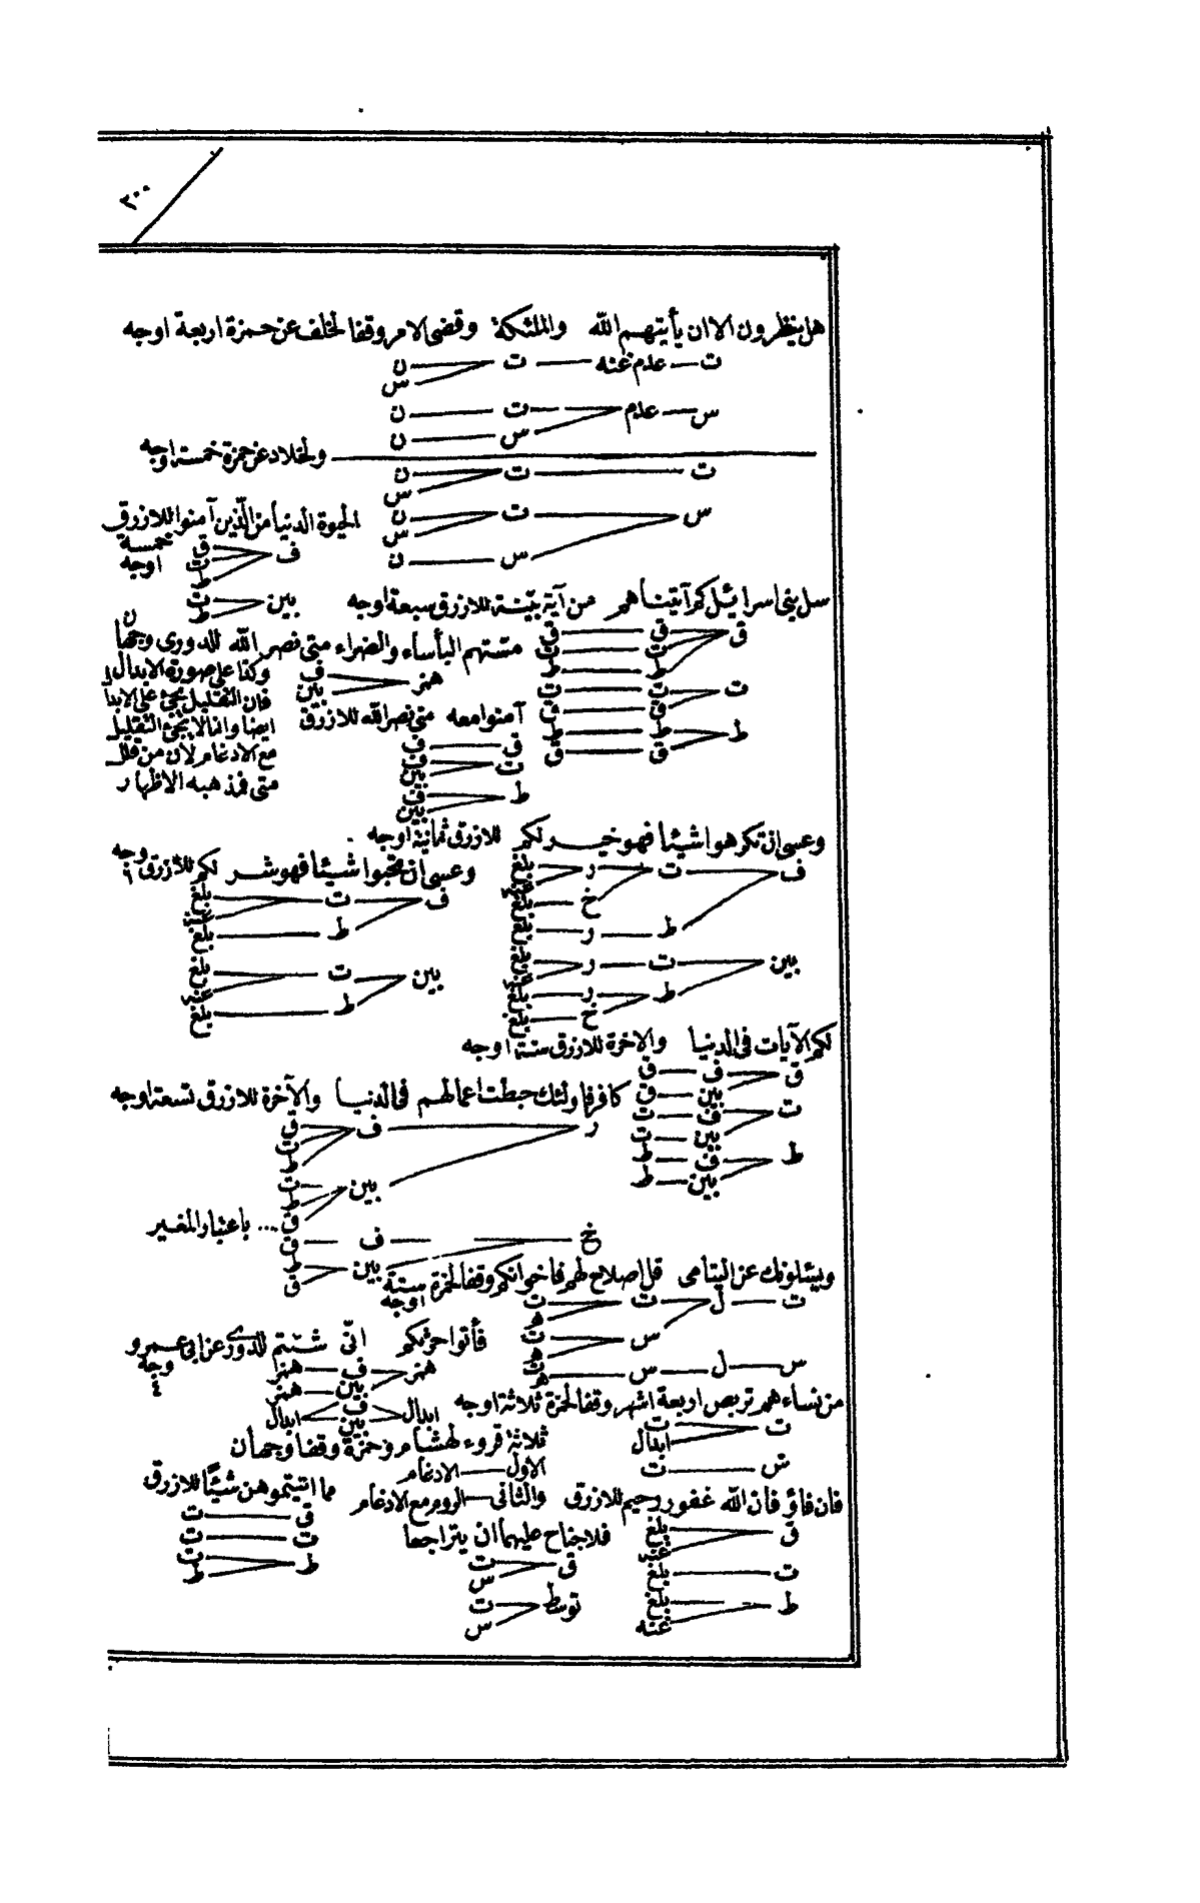 ٢٠٠
هل ينظرون الا ان يأتيهم الله والملئكة وقضى الامر وقفا لخلف عن حمزة اربعة اوجه
ت عدم غنه ت ن
س
س عدم ت ن
س ن
ولخلاد عن حمزة خمسة اوجه
ت ت ن
س
س ت ن
س
س ن
الحيوة الدنيا من الذين آمنوا للازرق خمسة اوجه
ف ق
ت
ط
بين ت
ط
سل بنى اسرائيل كم آتيناهم من آية بيّنة للازرق سبعة اوجه
ق ق ق
ت ت
ط ط
ت ت ت
ق ق
ط ط ط
ق ق
مسّتهم البأساء والضراء متى نصر الله للدورى وجهان
همز ف
بين
وكذا على صورة الابدال
فان التقليل يجئ على الابدال
ايضا وانما لا يجئ التقليل
مع الادغام لان من قلل
متى فمذهبه الاظهار
آمنوا معه متى نصر الله للازرق
ق ف
ت ف
بين
ط ف
بين
وعسى ان تكرهوا شيئا فهو خير لكم للازرق ثمانية اوجه
ف ت ر بلغ
غنه
خ بلغ
ط ر بلغ
بين ت ر بلغ
غنه
ط ر بلغ
خ بلغ
وعسى ان تحبوا شيئا فهو شر لكم للازرق ٦ وجه
ف ت بلغ
غنه
ط بلغ
بين ت بلغ
غنه
ط بلغ
لكم الآيات فى الدنيا والاخرة للازرق ستة اوجه
ق ف ق
بين ق
ت ف ت
بين ت
ط ف ط
بين ط
كافر فاولئك حبطت اعمالهم فى الدنيا والآخرة للازرق تسعة اوجه
ر ف ق
ت
ط
بين ت
ط
ق ... باعتبار المغير
خ ف ق
بين ط
ق
ويسئلونك عن اليتامى قل اصلاح لهم فاخوانكم وقفا لحمزة ستة اوجه
ت ل ت ت
ه
س ت
ه
س ل س ت
ه
فأتوا حرثكم انّى شئتم للدورى عن ابى عمرو ٤ وجه
همز ف همز
بين همز
ابدال ف ابدال
بين
من نساءهم تربص اربعة اشهر وقفا لحمزة ثلاثة اوجه
ت ت
ابدال
س ت
ثلاثة قروء لهشام وحمزة وقفا وجهان
الاول الادغام
والثانى الروم مع الادغام
فان فاؤ فان الله غفور رحيم للازرق
ق بلغ
غنه
ت بلغ
ط بلغ
غنه
فلا جناح عليهما ان يتراجعا
ق ت
س
توسط ت
س
مما اتيتموهن شيئا للازرق
ق ت
ت ت
ط ت
ط